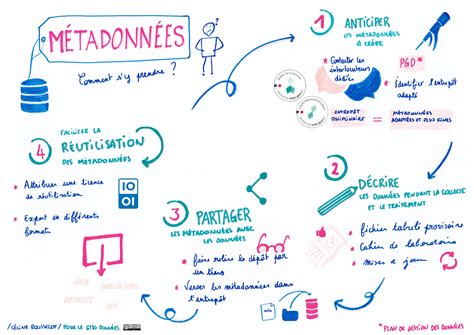 MÉTADONNÉES
Comment s'y prendre ?
1 ANTICIPER
LES MÉTADONNÉES
À CRÉER
* Contacter les
interlocuteurs
dédiés
PGD*
* Identifier l'entrepôt
adapté
ENTREPÔT
DISCIPLINAIRE
=
MÉTADONNÉES
ADAPTÉES ET PLUS FINES
2 DÉCRIRE
LES DONNÉES PENDANT LA COLLECTE
ET LE TRAITEMENT
* fichier tabulé provisoire
* Cahier de laboratoire
* mises à jour
3 PARTAGER
LES MÉTADONNÉES AVEC
LES DONNÉES
* faire relire le dépôt par
un tiers
* Verser les métadonnées dans
l'entrepôt
4 FACILITER LA
RÉUTILISATION
DES MÉTADONNÉES
* Attribuer une licence
de réutilisation
* Export en différents
formats
JSON
DUBLIN CORE
DATACITE
DDI
/CÉLINE ROUSSELOT/ POUR LE GTSO DONNÉES
*PLAN DE GESTION DES DONNÉES